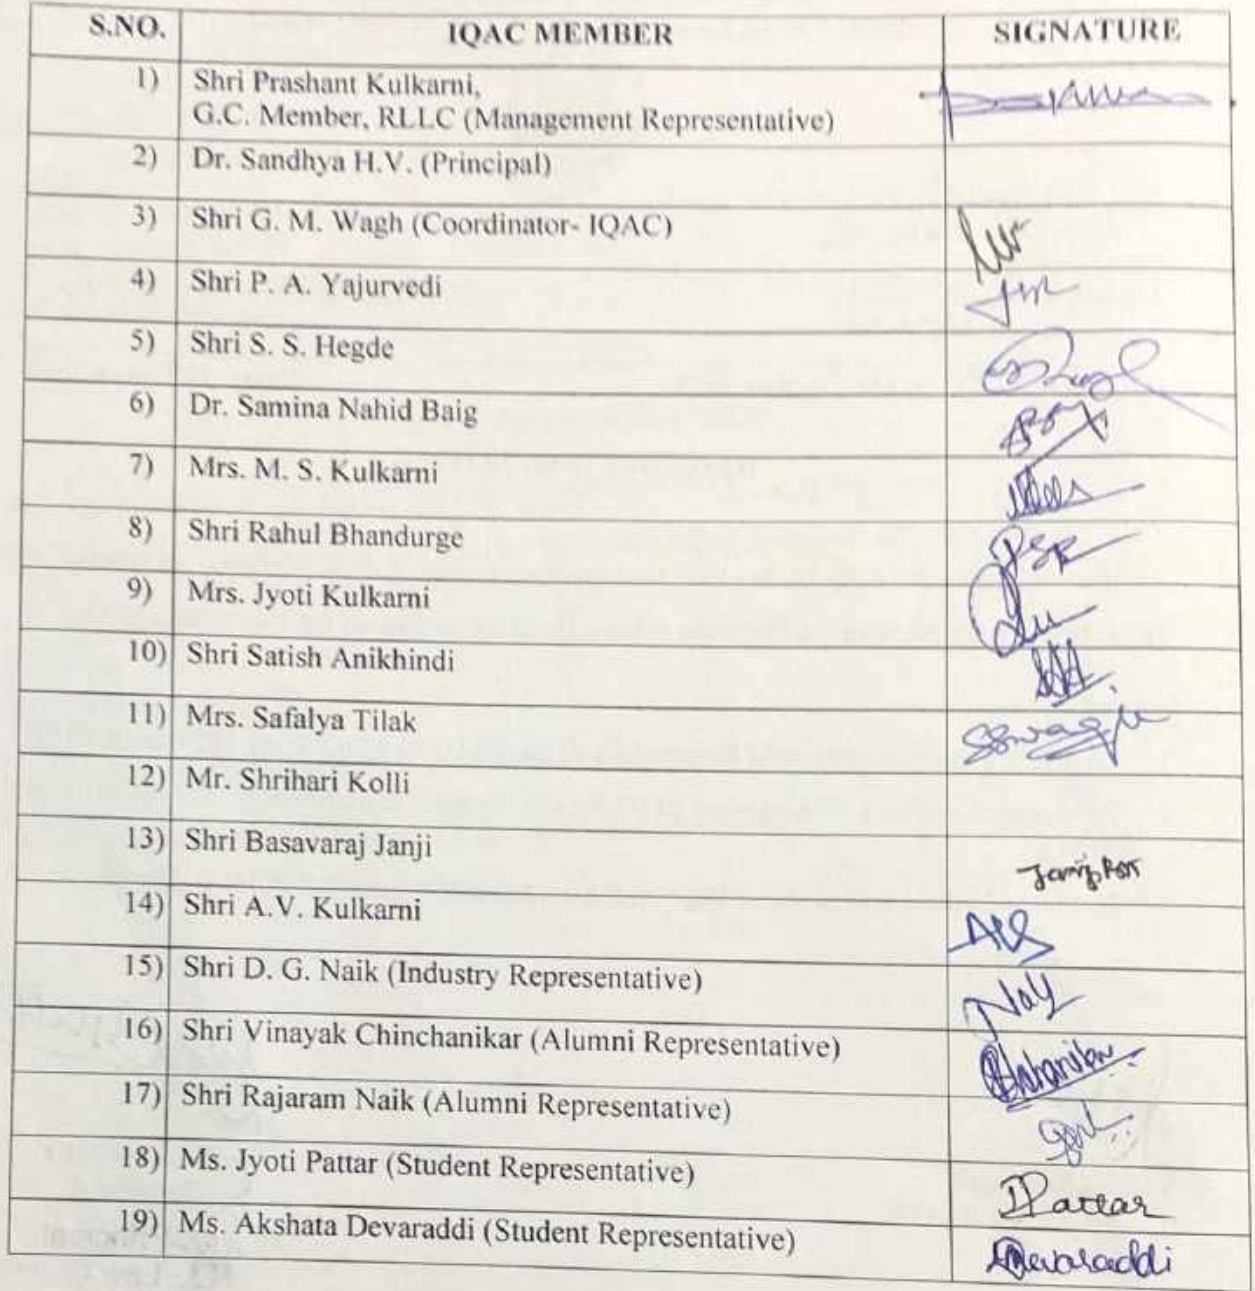 S.NO. IQAC MEMBER SIGNATURE
1) Shri Prashant Kulkarni,
G.C. Member, RLLC (Management Representative)
2) Dr. Sandhya H.V. (Principal)
3) Shri G. M. Wagh (Coordinator- IQAC)
4) Shri P. A. Yajurvedi
5) Shri S. S. Hegde
6) Dr. Samina Nahid Baig
7) Mrs. M. S. Kulkarni
8) Shri Rahul Bhandurge
9) Mrs. Jyoti Kulkarni
10) Shri Satish Anikhindi
11) Mrs. Safalya Tilak
12) Mr. Shrihari Kolli
13) Shri Basavaraj Janji
14) Shri A.V. Kulkarni
15) Shri D. G. Naik (Industry Representative)
16) Shri Vinayak Chinchanikar (Alumni Representative)
17) Shri Rajaram Naik (Alumni Representative)
18) Ms. Jyoti Pattar (Student Representative) Pattar
19) Ms. Akshata Devaraddi (Student Representative) Devaraddi